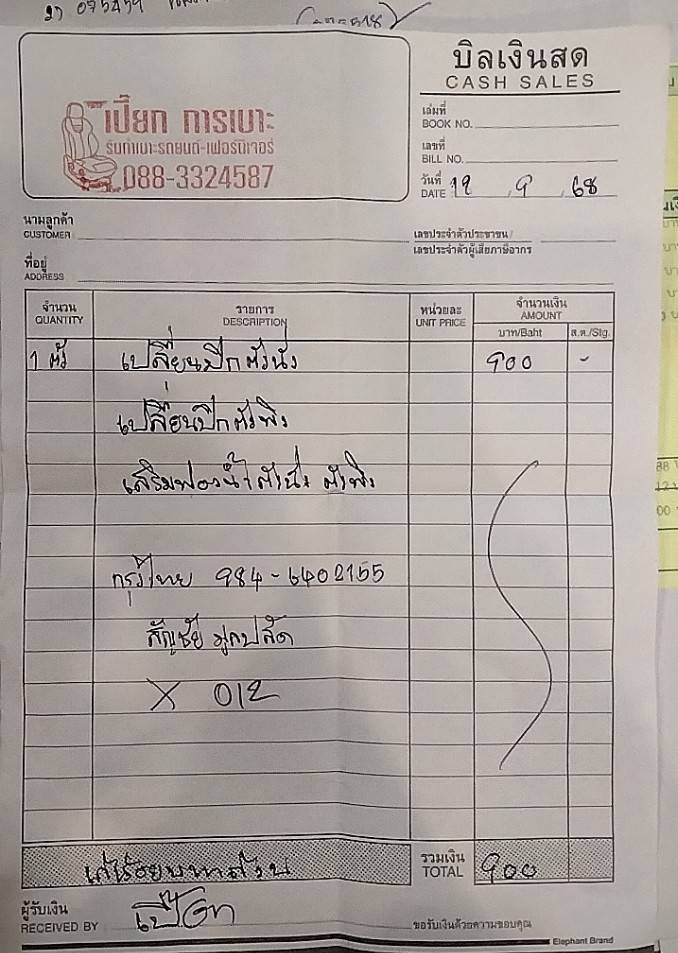 2) 075459
บิลเงินสด
CASH SALES
เปี๊ยก การเบาะ
รับทำเบาะรถยนต์-เฟอร์นิเจอร์
088-3324587
เล่มที่
BOOK NO.
เลขที่
BILL NO.
วันที่
DATE 19 9 68
นามลูกค้า
CUSTOMER
เลขประจำตัวประชาชน/
เลขประจำตัวผู้เสียภาษีอากร
ที่อยู่
ADDRESS
จำนวน รายการ หน่วยละ จำนวนเงิน
QUANTITY DESCRIPTION UNIT PRICE AMOUNT
บาท/Baht ส.ต./Stg.
1 ตัว เปลี่ยนปีกตัวนั่ง 900 -
เปลี่ยนปีกตัวพิง
เสริมฟองน้ำตัวนั่ง ตัวพิง
กรุงไทย 984-6402155
สัญชัย
X 012
เก้าร้อยบาทถ้วน
รวมเงิน
TOTAL 900
ผู้รับเงิน
RECEIVED BY เปี๊ยก
ขอรับเงินด้วยความขอบคุณ
Elephant Brand